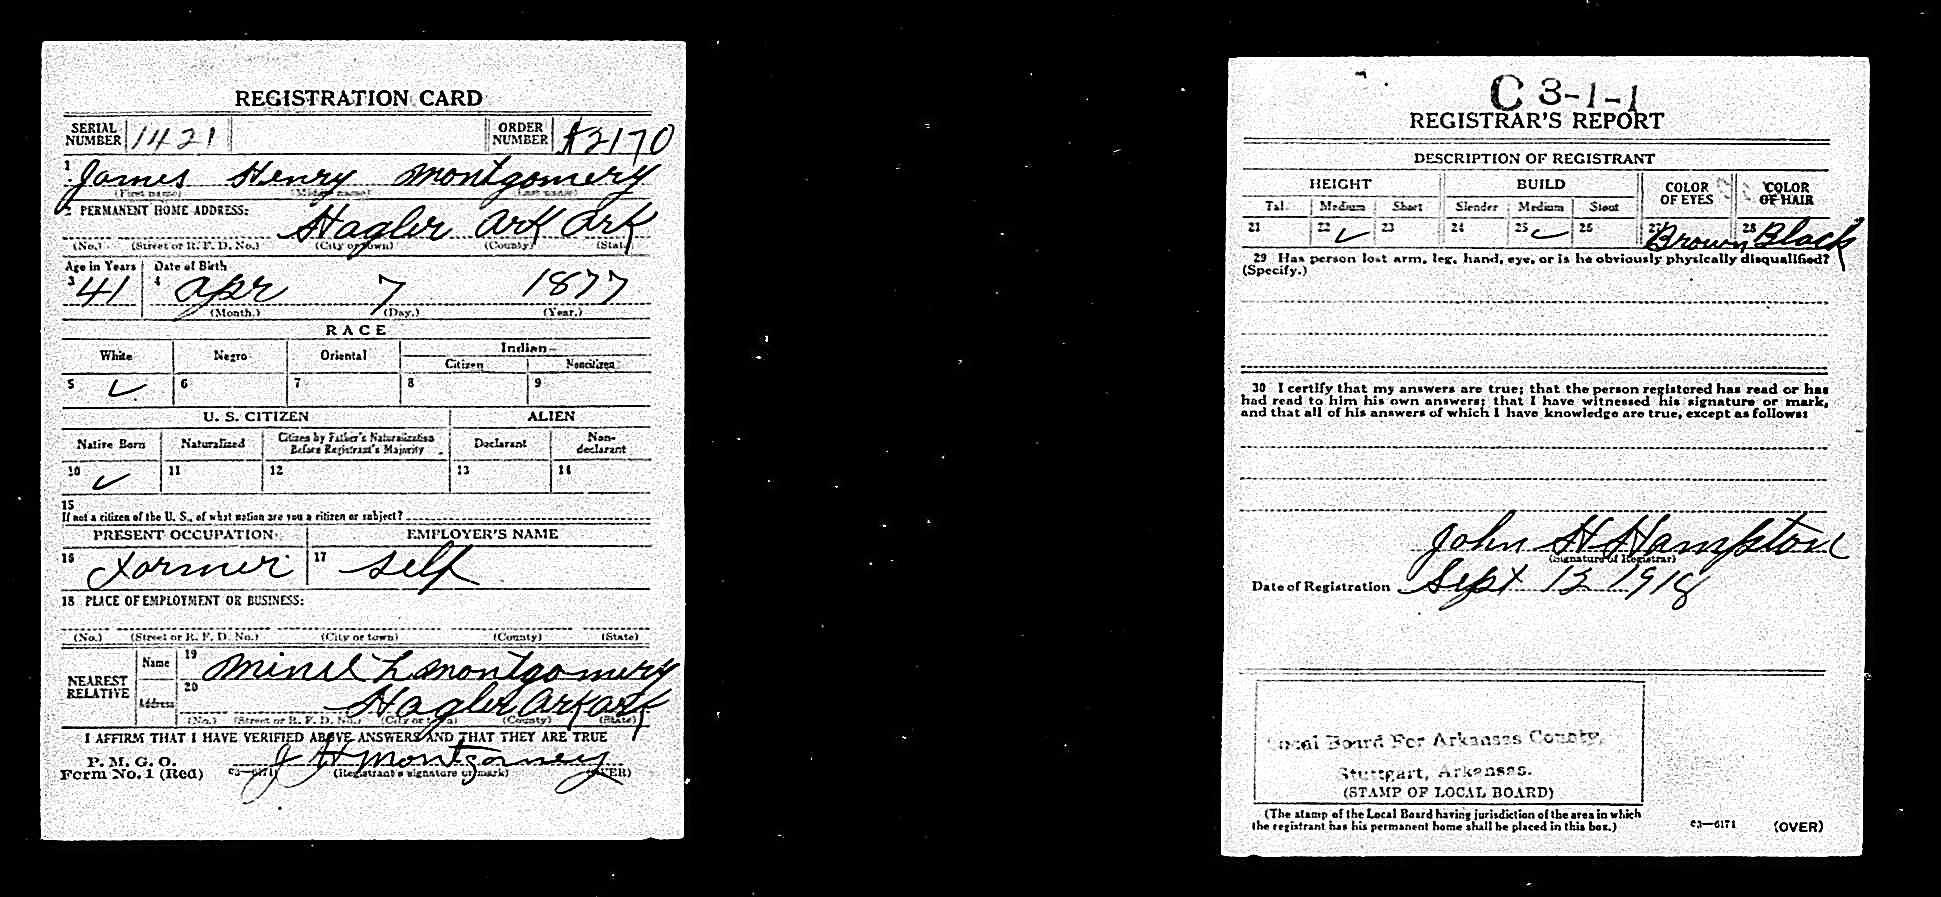 REGISTRATION CARD
SERIAL NUMBER 1421 ORDER NUMBER A2170
1 James Henry Montgomery
(First name) (Middle name) (Last name)
2 PERMANENT HOME ADDRESS:
Hagler Ark Ark
(No.) (Street or R. F. D. No.) (City or town) (County) (State)
Age in Years Date of Birth
3 41 4 Apr 7 1877
(Month.) (Day.) (Year.)
RACE
White Negro Oriental Indian
Citizen Noncitizen
5 ✓ 6 7 8 9
U. S. CITIZEN ALIEN
Native Born Naturalized Citizen by Father's Naturalization Before Registrant's Majority Declarant Non-declarant
10 ✓ 11 12 13 14
15
If not a citizen of the U. S., of what nation are you a citizen or subject?
PRESENT OCCUPATION EMPLOYER'S NAME
16 Farmer 17 Self
18 PLACE OF EMPLOYMENT OR BUSINESS:
(No.) (Street or R. F. D. No.) (City or town) (County) (State)
NEAREST RELATIVE Name 19 L Montgomery
Address 20 Hagler Ark Ark
(No.) (Street or R. F. D. No.) (City or town) (County) (State)
I AFFIRM THAT I HAVE VERIFIED ABOVE ANSWERS AND THAT THEY ARE TRUE
P. M. G. O.
Form No. 1 (Red) 03—6171 J H Montgomery
(Registrant's signature or mark) (OVER)
C 3-1-1
REGISTRAR'S REPORT
DESCRIPTION OF REGISTRANT
HEIGHT BUILD COLOR OF EYES COLOR OF HAIR
Tall Medium Short Slender Medium Stout
21 22 ✓ 23 24 25 ✓ 26 27 Brown 28 Black
29 Has person lost arm, leg, hand, eye, or is he obviously physically disqualified?
(Specify.)
30 I certify that my answers are true; that the person registered has read or has
had read to him his own answers; that I have witnessed his signature or mark,
and that all of his answers of which I have knowledge are true, except as follows:
John H Hampton
(Signature of Registrar)
Date of Registration Sept 1918
Local Board For Arkansas County,
Stuttgart, Arkansas.
(STAMP OF LOCAL BOARD)
(The stamp of the Local Board having jurisdiction of the area in which
the registrant has his permanent home shall be placed in this box.)
03—6171 (OVER)